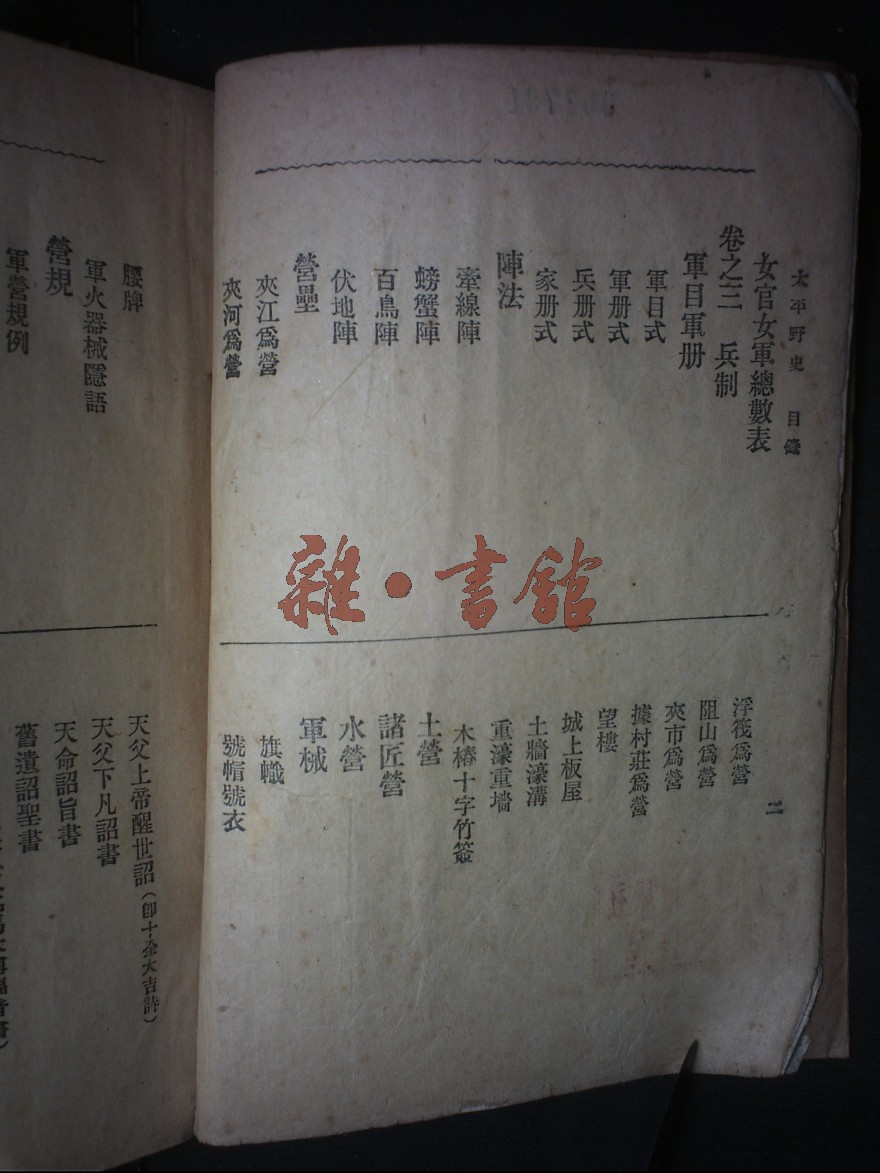 太平野史　目錄
二
女官女軍總數表
卷之三　兵制
軍目軍册
軍目式
軍册式
兵册式
家册式
陣法
牽線陣
螃蟹陣
百鳥陣
伏地陣
營壘
夾江爲營
夾河爲營
浮筏爲營
阻山爲營
夾市爲營
據村莊爲營
望樓
城上板屋
土牆濠溝
重濠重墻
木樁十字竹簽
土營
諸匠營
水營
軍械
旗幟
號帽號衣
雜·書館
腰牌
軍火器械隱語
營規
軍營規例
天父上帝醒世詔（卽十全大吉詩）
天父下凡詔書
天命詔旨書
舊遺詔聖書